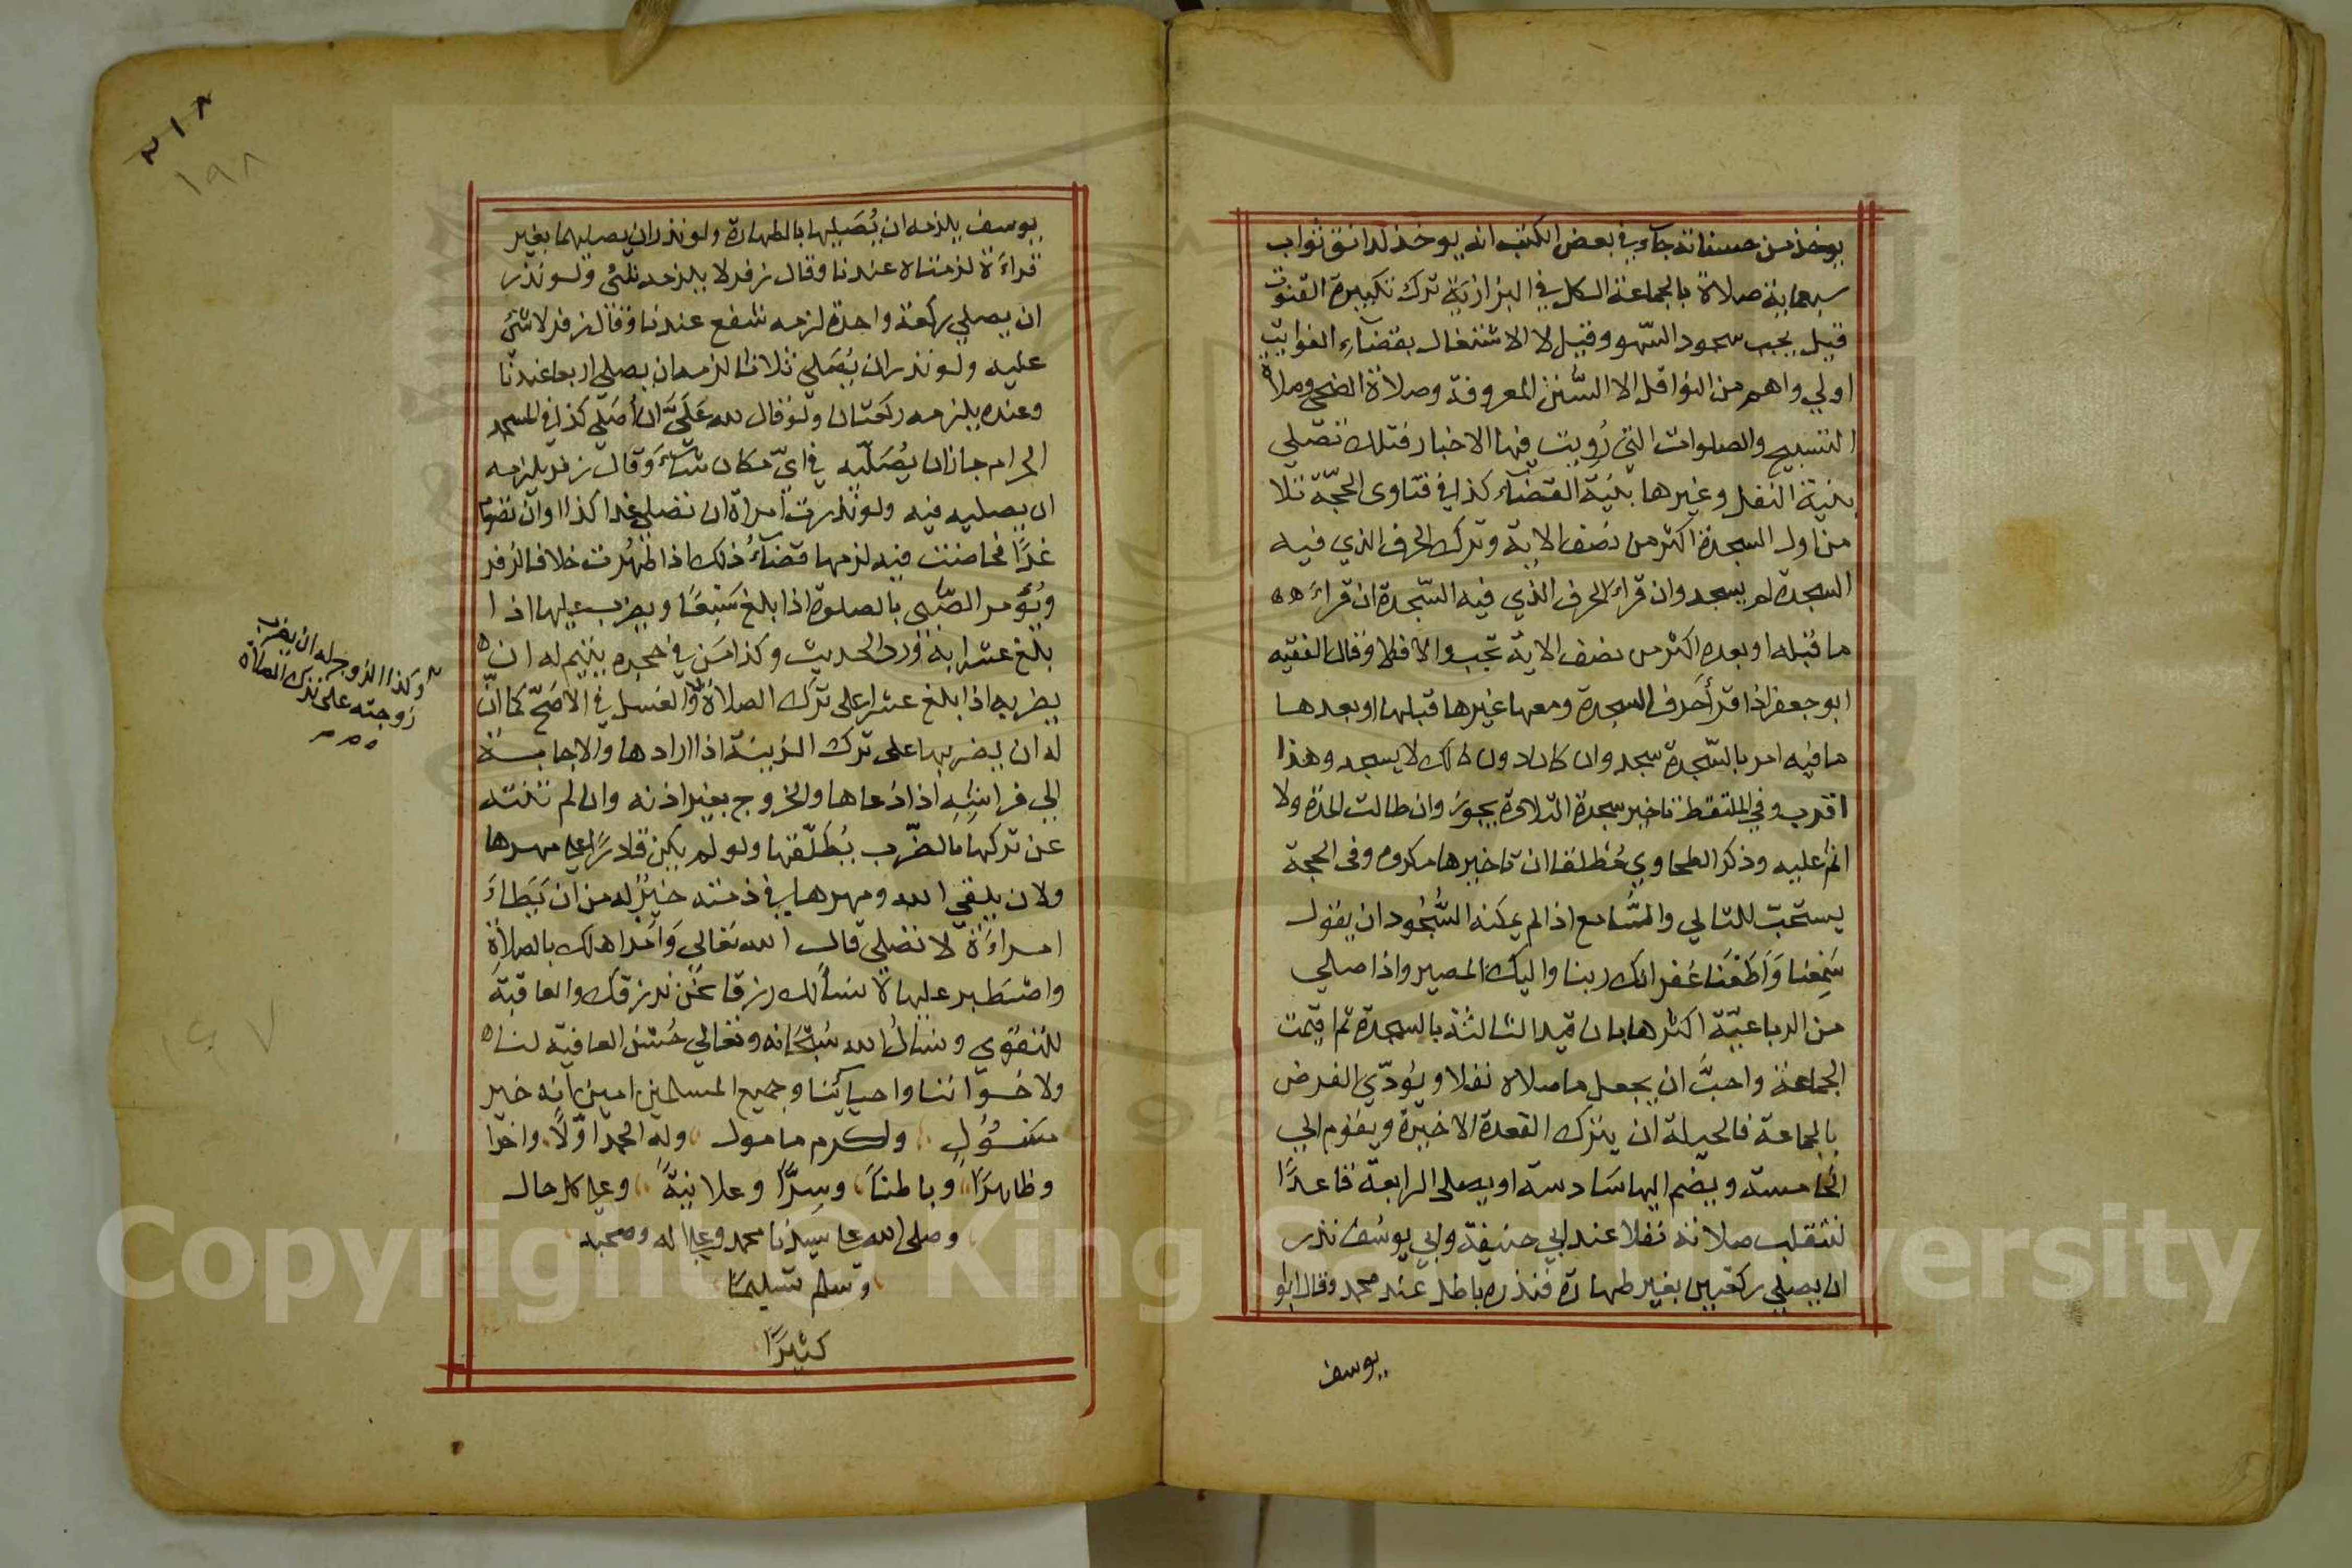 يوخذ من حسناته جاء في بعض الكتب انه يوخذ لدانق ثواب
سبعماية صلاة بالجماعة الكل في البزازية ترك تكبيرة القنوت
قيل يجب سجود السّهو وقيل لا الاشتغال بقضاءِ الفوايت
اولي واهم من النوافل الا السُّنن المعروفة وصلاة الضحى وصلاة
التسبيح والصلوات التي رُويت فيها الاخبار فتلك تصلي
بنية النفل وغيرها بنيَة القضاء كذا في فتاوى الحجّة تلا
من اول السجدة اكثر من نصف الاية وترك الحرف الذي فيه
السجدة لم يسجد وان قراء الحرف الذي فيه السّجدة ان قراءَ
ما قبله او بعده اكثر من نصف الاية تجب والا فلا وقال الفقيه
ابو جعفر اذا قرأ حرف السجدة ومعها غيرها قبلها او بعدها
ما فيه امر بالسّجدة سجد وان كان دون ذلك لا يسجد وهذا
اقرب وفي الملتقط تاخير سجدة التلاوة يجوز وان طالت المدة ولا
اثم عليه وذكر الطحاوي مُطلقا ان تاخيرها مكروه وفى الحجة
يستحب للتالي والسَّامع اذا لم يمكنه السُّجُود ان يقول
سَمِعنا وَاَطَعْنَا غفرانك ربنا واليك المصير واذا صلي
من الرباعيّة اكثرها بان قيد الثالثة بالسجدة ثم اقيمت
الجماعة واحبَّ ان يجعل ما صلاه نفلا ويُؤدّي الفرض
بالجماعة فالحيلة ان يترك القعدة الاخيرة ويقوم الي
الخامسة ويضم اليها سَادسة او يصلى الرابعة قاعدًا
لتنقلب صلاته نفلا عند ابي حنيفة وابي يوسُف نذر
ان يصلي ركعتين بغير طهارة فنذره باطل عند محمد وقال ابو
يوسف
٢١٨
١٩٨
يوسف يلزمه ان يُصَليها بالطهارة ولو نذر ان يصليهما بغير
قراءَة لزمتاه عندنا وقال زفر لا يلزمه شئ ولو نذر
ان يصلي ركعة واحدة لزمه شفع عندنا وقال زفر لا شئ
عليه ولو نذر ان يُصَلي ثلاثا لزمه ان يصلي اربعا عندنا
وعنده يلزمه ركعتان ولو قال لله عَلَيَّ ان أُصَلي كذا في المسجد
الحرام جاز ان يُصَلّيه في اىّ مكان شاءَ وقال زفر يلزمه
ان يصليه فيه ولو نذرت امراة ان تصلي غدا كذا او ان تصوم
غدًا فحاضت فيه لزمها قضاءُ ذلك اذا طهُرت خلافا لزفر
ويُؤمر الصَّبي بالصلوة اذا بلغ سَبعًا ويضرب عليها اذا
بلغ عشرا به وَرد الحديث وكذا مَن في حجره يتيم له ان
يضربه اذا بلغ عشرا على ترك الصلاة والغسل في الاصَحّ كما انّ
له ان يضربها على ترك الزينة اذا ارادها والاجابة
الي فراشِه اذا دَعاها والخروج بغير اذنه وان لم تنته
عن تركها بالضّرب يُطَلّقها ولو لم يكن قادرًا على مهرها
ولان يلقي الله ومهرها في ذمته خيرٌ له من ان يَطاءَ
امراءَة لا تصلي قال الله تعالي وَأمر اهلك بالصلاةِ
واصْطبر عليها لا نسألك رزقا نحن نرزقك والعاقبَة
للتقوي ونسألُ الله سُبحَانه وتعالي حُسْن العافية لنا
ولاخواننا واحيائنا وجميع المسلمين امين انه خير
مَسْؤُلٍ واكرم مامول وله الحمد اوّلاً واخرًا
وظاهرًا وباطنًا وسِرًّا وعلانيَةً وعلى كل حال
وصلى الله على سيّدنا محمد وعلى اله وصحبه
وسلم تسليمًا
كثيرًا
وكذا الزوج له ان يضرب
زوجته على ترك الصلاة
١٤٧
Copyright © King Saud University